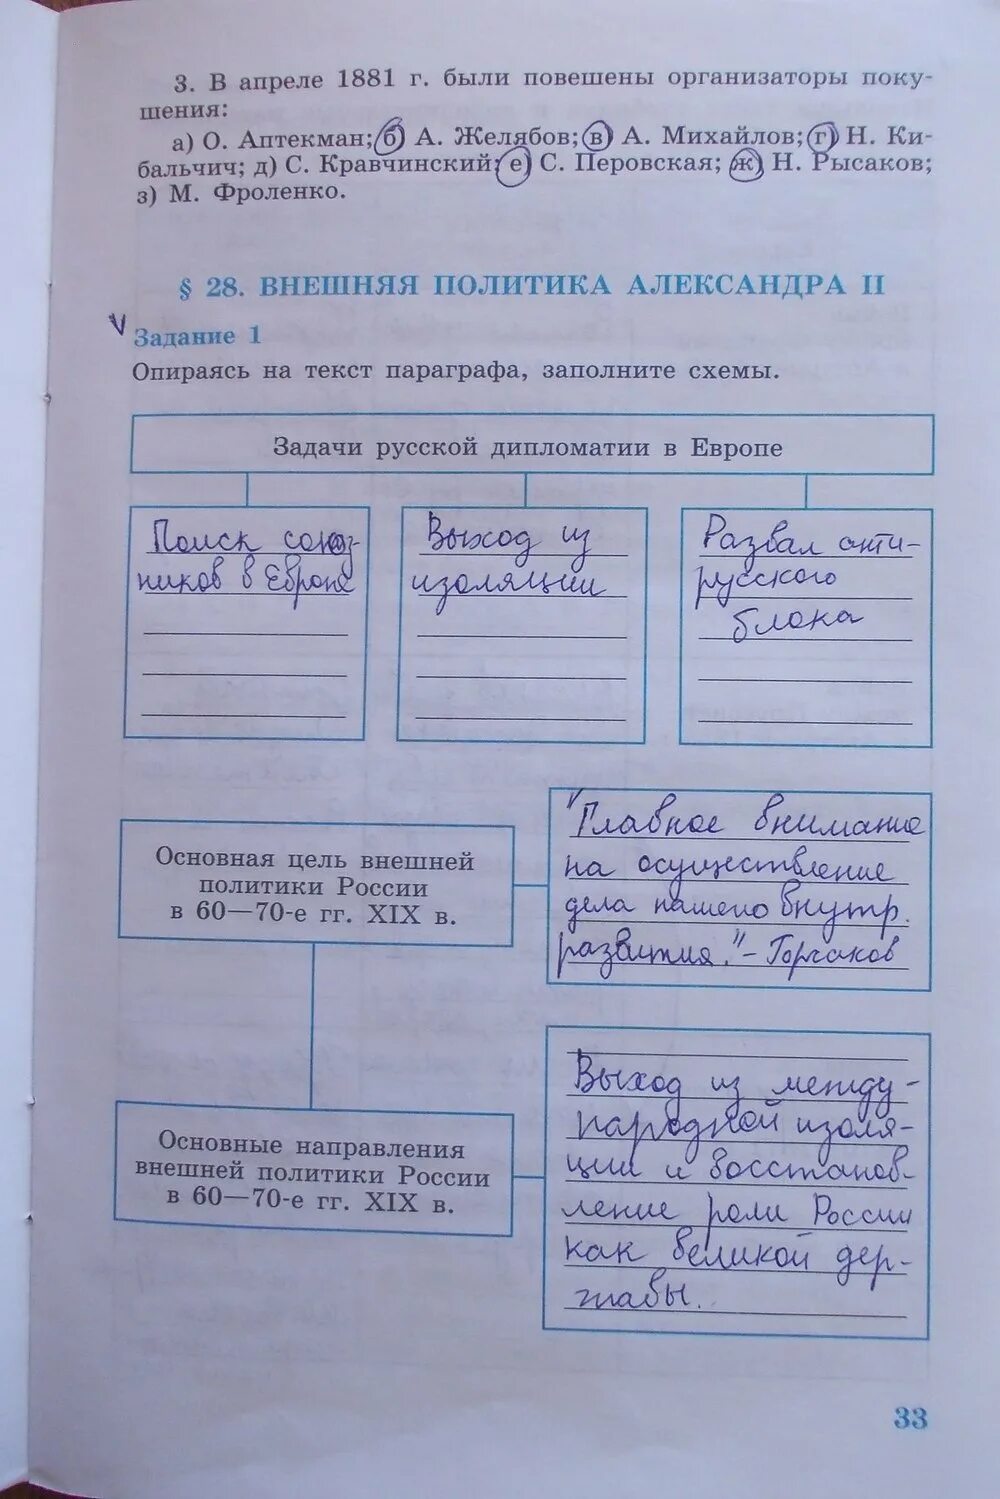 3. В апреле 1881 г. были повешены организаторы поку-
шения:
а) О. Аптекман; б) А. Желябов; в) А. Михайлов; г) Н. Ки-
бальчич; д) С. Кравчинский; е) С. Перовская; ж) Н. Рысаков;
з) М. Фроленко.
§ 28. ВНЕШНЯЯ ПОЛИТИКА АЛЕКСАНДРА II
V
Задание 1
Опираясь на текст параграфа, заполните схемы.
Задачи русской дипломатии в Европе
Поиск союз-
ников в Европе
Выход из
изоляции
Развал анти-
русского
блока
Основная цель внешней
политики России
в 60—70-е гг. XIX в.
"Главное внимание
на осуществление
дела нашего внутр.
развития." - Горчаков
Основные направления
внешней политики России
в 60—70-е гг. XIX в.
Выход из между-
народной изоля-
ции и восстанов-
ление роли России
как великой дер-
жавы.
33